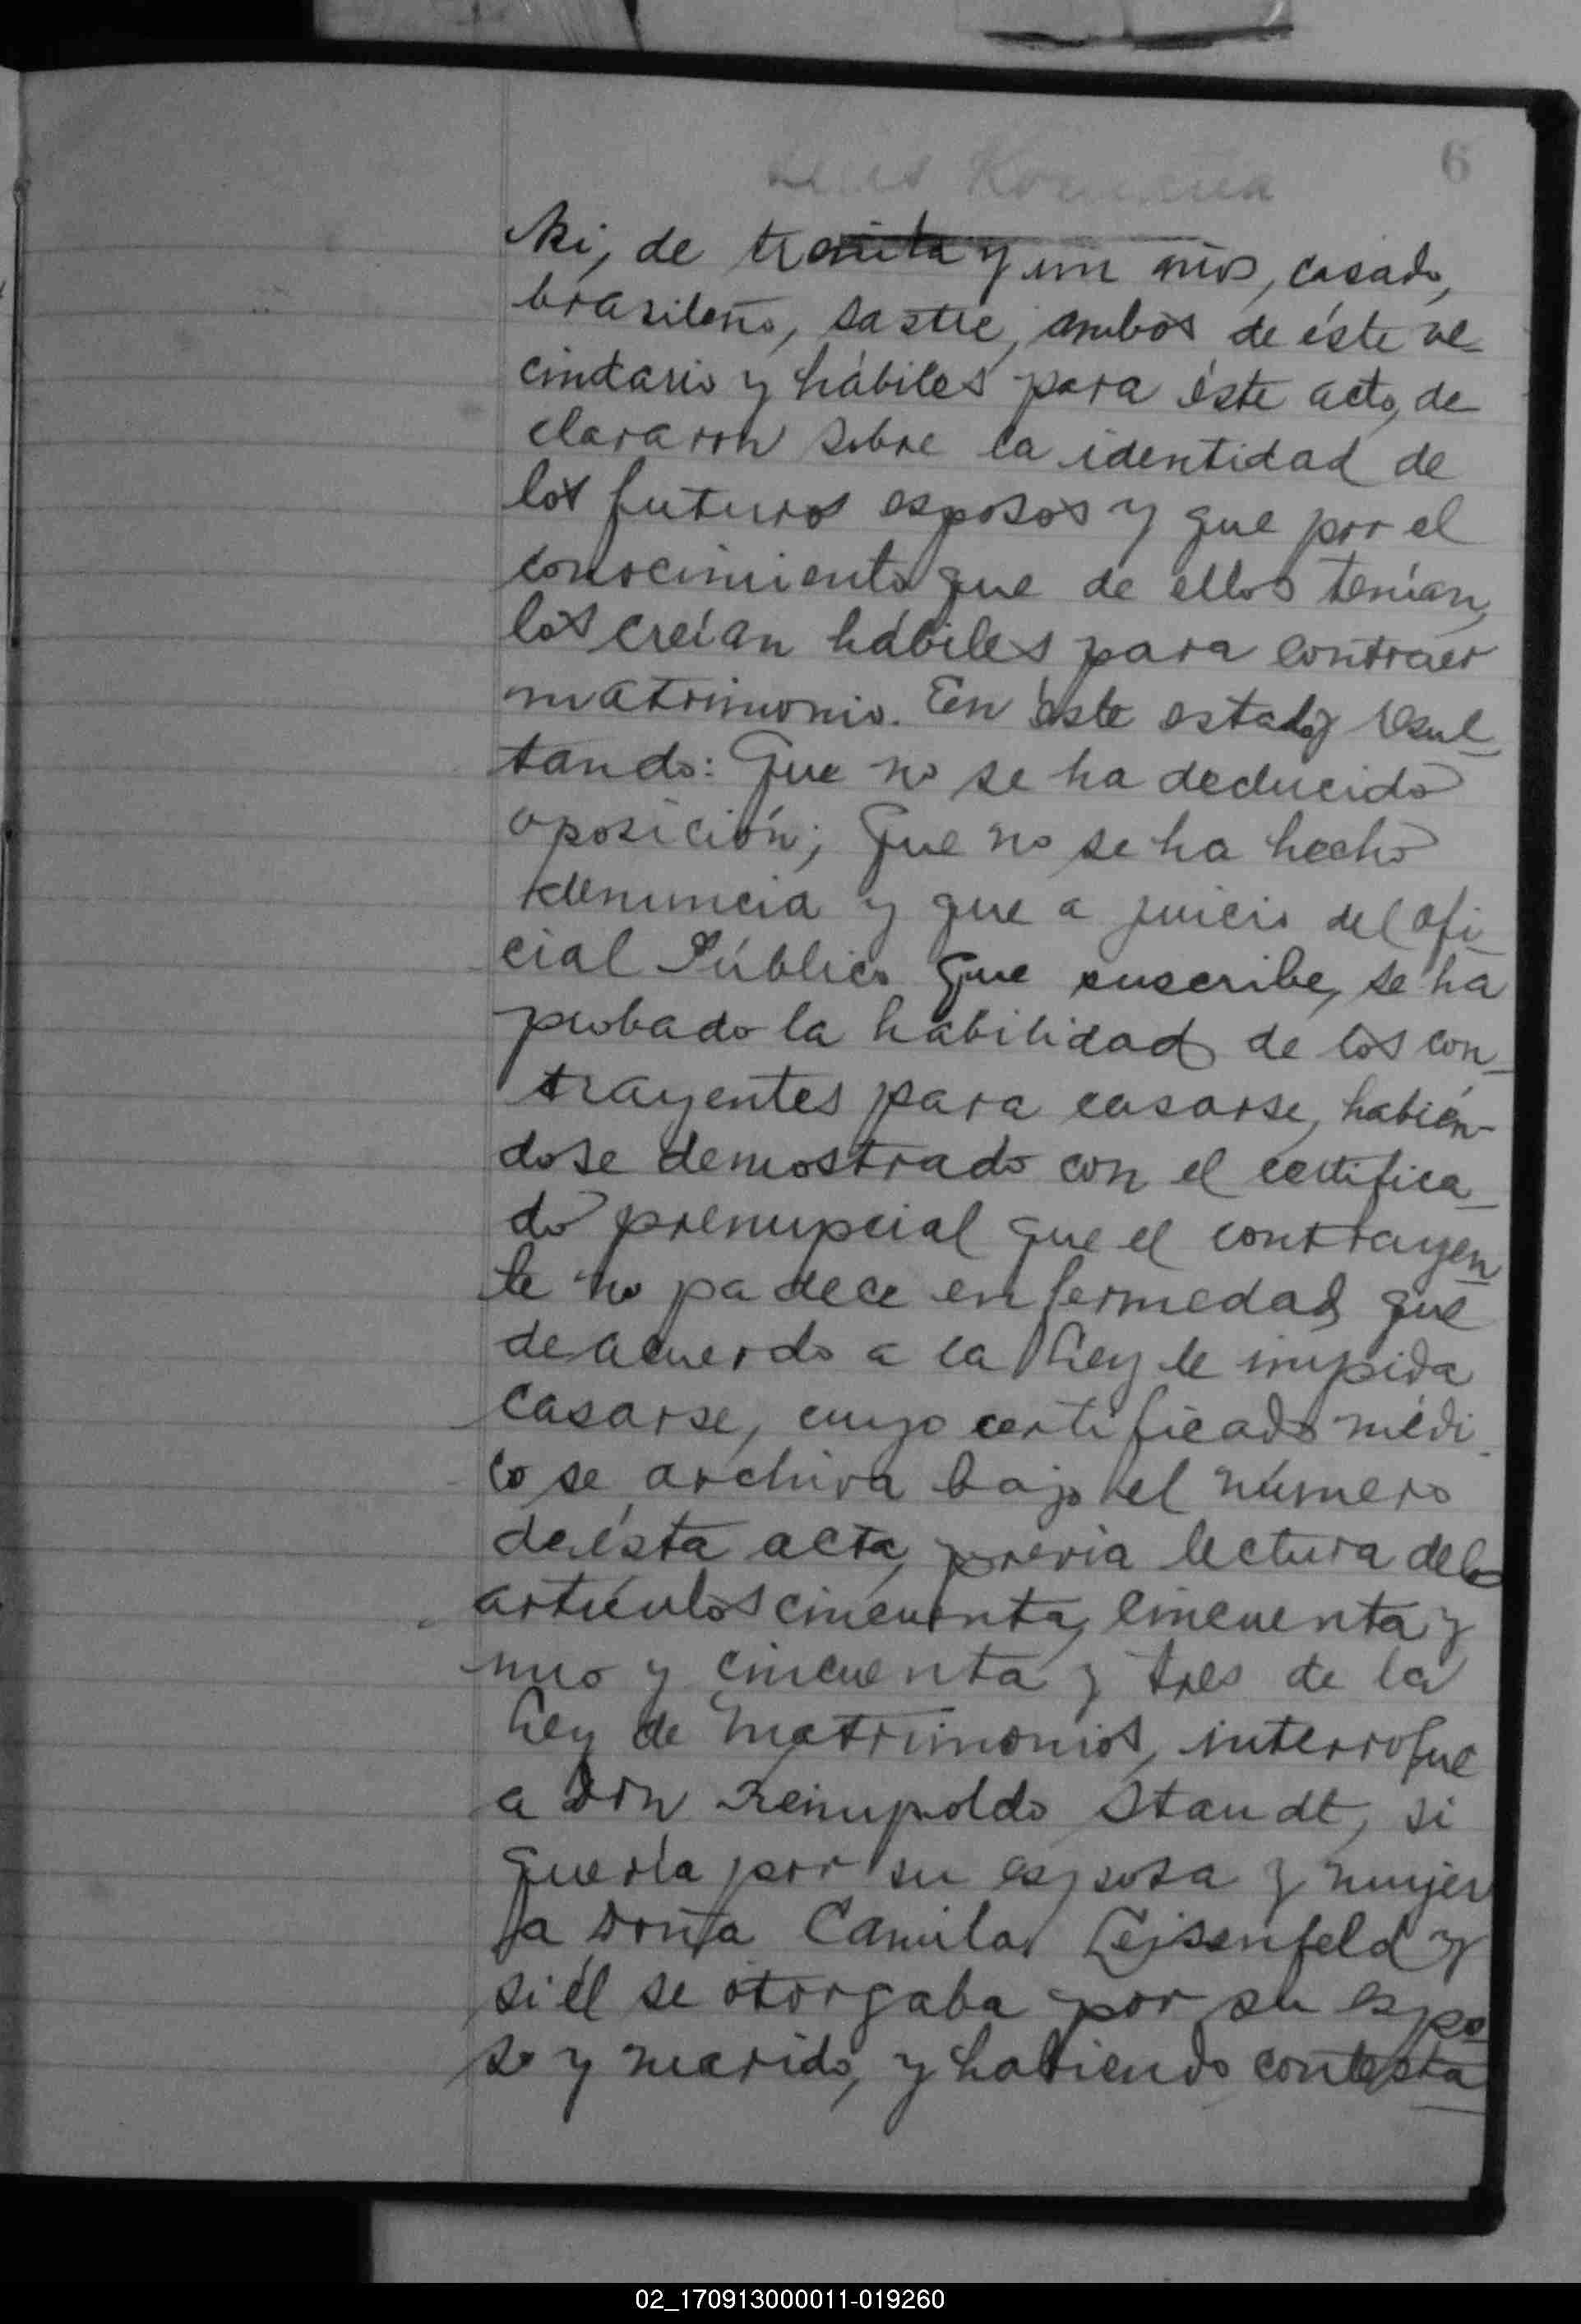 6
ki, de treinta y un años, casado,
brasileño, sastre, ambos de éste ve-
cindario y hábiles para éste acto, de-
clararon sobre la identidad de
los futuros esposos y que por el
conocimiento que de ellos tenían,
los creían hábiles para contraer
matrimonio. En éste estado y resul-
tando: Que no se ha deducido
oposición; Que no se ha hecho
denuncia y que a juicio del Ofi-
cial Público que suscribe, se ha
probado la habilidad de los con-
trayentes para casarse, habién-
dose demostrado con el certifica-
do prenupcial que el contrayen-
te no padece enfermedad que
de acuerdo a la Ley le impida
casarse, cuyo certificado médi-
co se archiva bajo el número
de ésta acta, previa lectura de los
artículos cincuenta, cincuenta y
uno y cincuenta y tres de la
Ley de Matrimonios, interrogué
a don Reimpoldo Staudt, si
quería por su esposa y mujer
a doña Camila Leisenfeld y
si él se otorgaba por su espo-
so y marido, y habiendo contesta-
02_170913000011-019260